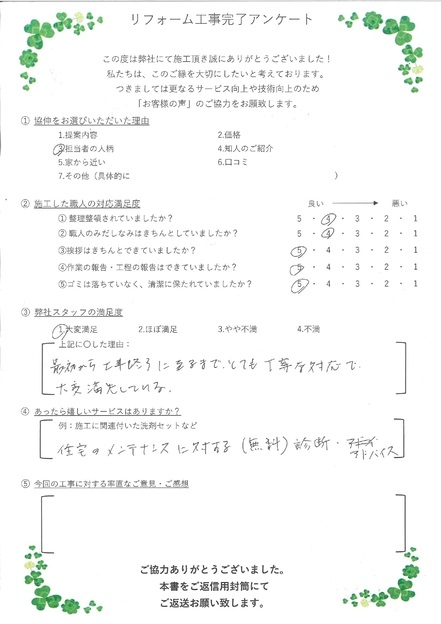 リフォーム工事完了アンケート
この度は弊社にて施工頂き誠にありがとうございました！
私たちは、このご縁を大切にしたいと考えております。
つきましては更なるサービス向上や技術向上のため
「お客様の声」のご協力をお願致します。
① 協伸をお選びいただいた理由
1.提案内容 2.価格
3.担当者の人柄 4.知人のご紹介
5.家から近い 6.口コミ
7.その他（具体的に ）
② 施工した職人の対応満足度 良い 悪い
①整理整頓されていましたか？ 5 ・ 4 ・ 3 ・ 2 ・ 1
②職人のみだしなみはきちんとしていましたか？ 5 ・ 4 ・ 3 ・ 2 ・ 1
③挨拶はきちんとできていましたか？ 5 ・ 4 ・ 3 ・ 2 ・ 1
④作業の報告・工程の報告はできていましたか？ 5 ・ 4 ・ 3 ・ 2 ・ 1
⑤ゴミは落ちていなく、清潔に保たれていましたか？ 5 ・ 4 ・ 3 ・ 2 ・ 1
③ 弊社スタッフの満足度
1.大変満足 2.ほぼ満足 3.やや不満 4.不満
上記に〇した理由：
最初から工事終了に至るまで、とても丁寧な対応で
大変満足している。
④ あったら嬉しいサービスはありますか？
例：施工に関連付いた洗剤セットなど
住宅のメンテナンスに対する（無料）診断・
アドバイス
⑤ 今回の工事に対する率直なご意見・ご感想
ご協力ありがとうございました。
本書をご返信用封筒にて
ご返送お願い致します。